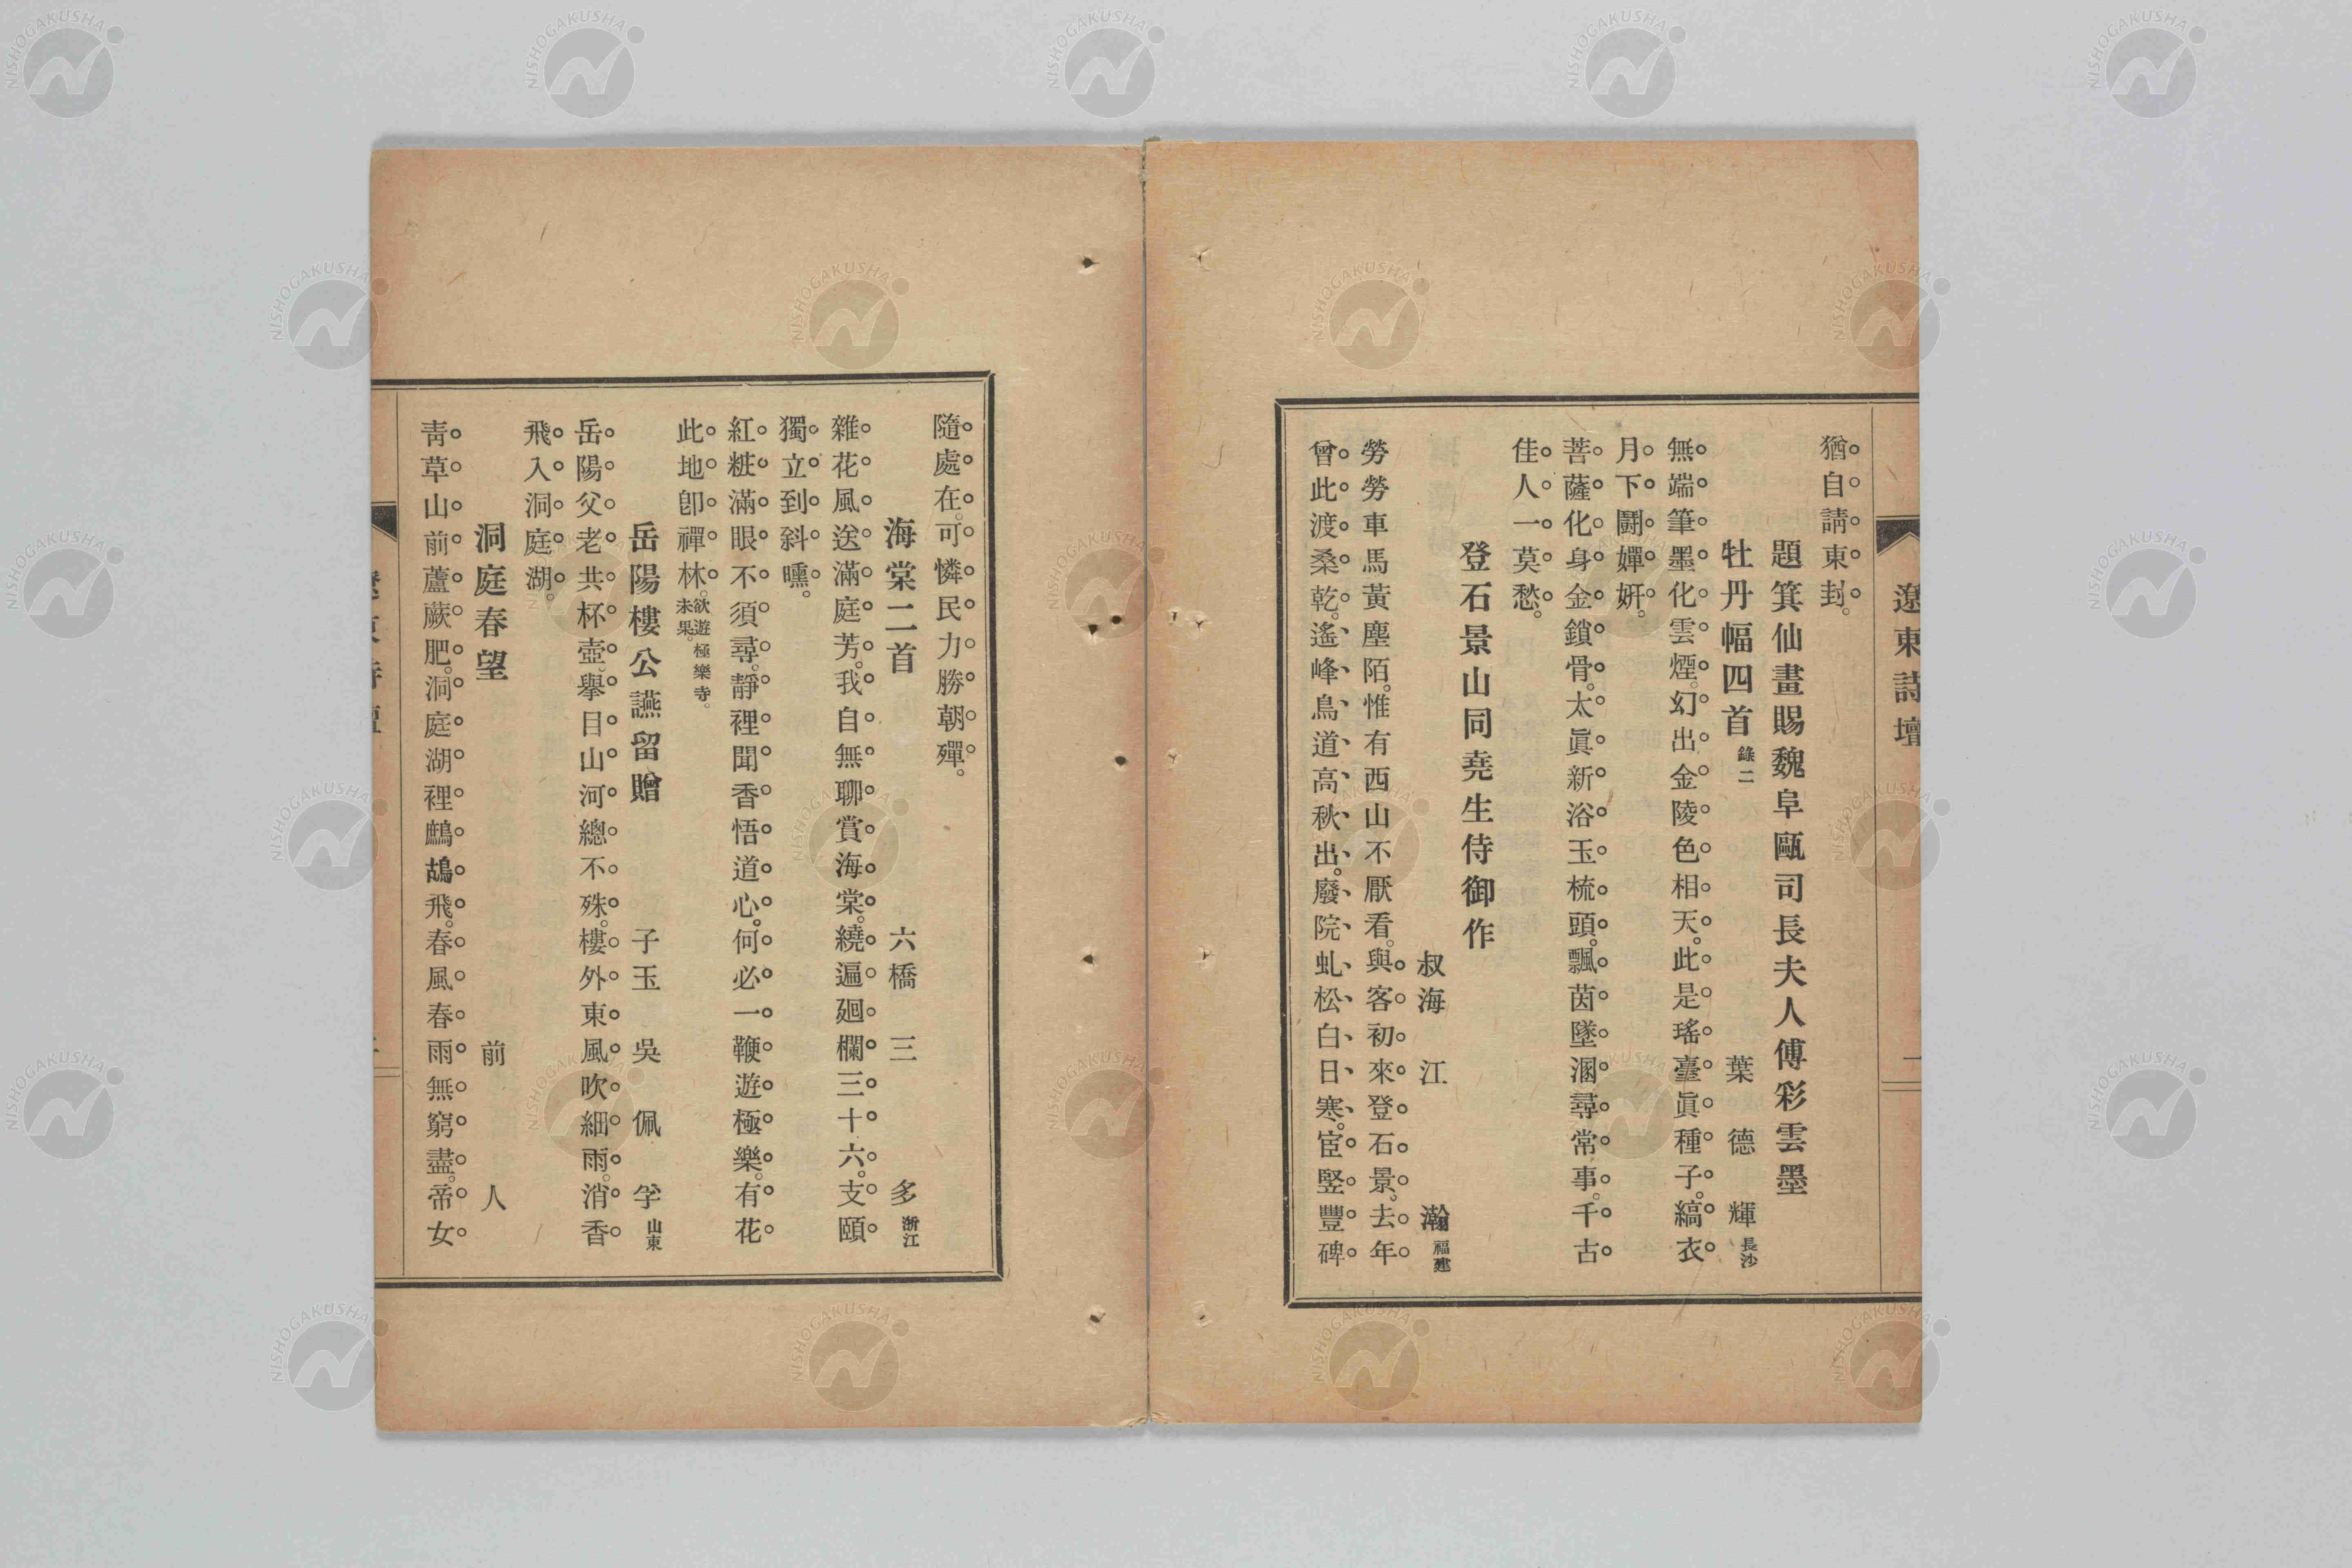 遼東詩壇
一
猶自請東封。
題箕仙畫賜魏阜甌司長夫人傅彩雲墨
牡丹幅四首 錄二 葉德輝 長沙
無端筆墨化雲煙。幻出金陵色相天。此是瑤臺眞種子。縞衣
月下鬭嬋妍。
菩薩化身金鎖骨。太眞新浴玉梳頭。飄茵墜溷尋常事。千古
佳人一莫愁。
登石景山同堯生侍御作
叔海 江瀚 福建
勞勞車馬黃塵陌。惟有西山不厭看。與客初來登石景。去年
曾此渡桑乾。遙峰鳥道高秋出。廢院虬松白日寒。宦竪豐碑
隨處在。可憐民力勝朝殫。
海棠二首 六橋 三多 浙江
雜花風送滿庭芳。我自無聊賞海棠。繞遍廻欄三十六。支頤
獨立到斜曛。
紅粧滿眼不須尋。靜裡聞香悟道心。何必一鞭遊極樂。有花
此地卽禪林。欲遊極樂寺。未果。
岳陽樓公讌留贈 子玉 吳佩孚 山東
岳陽父老共杯壺。擧目山河總不殊。樓外東風吹細雨。消香
飛入洞庭湖。
洞庭春望 前人
靑草山前蘆蕨肥。洞庭湖裡鷓鴣飛。春風春雨無窮盡。帝女